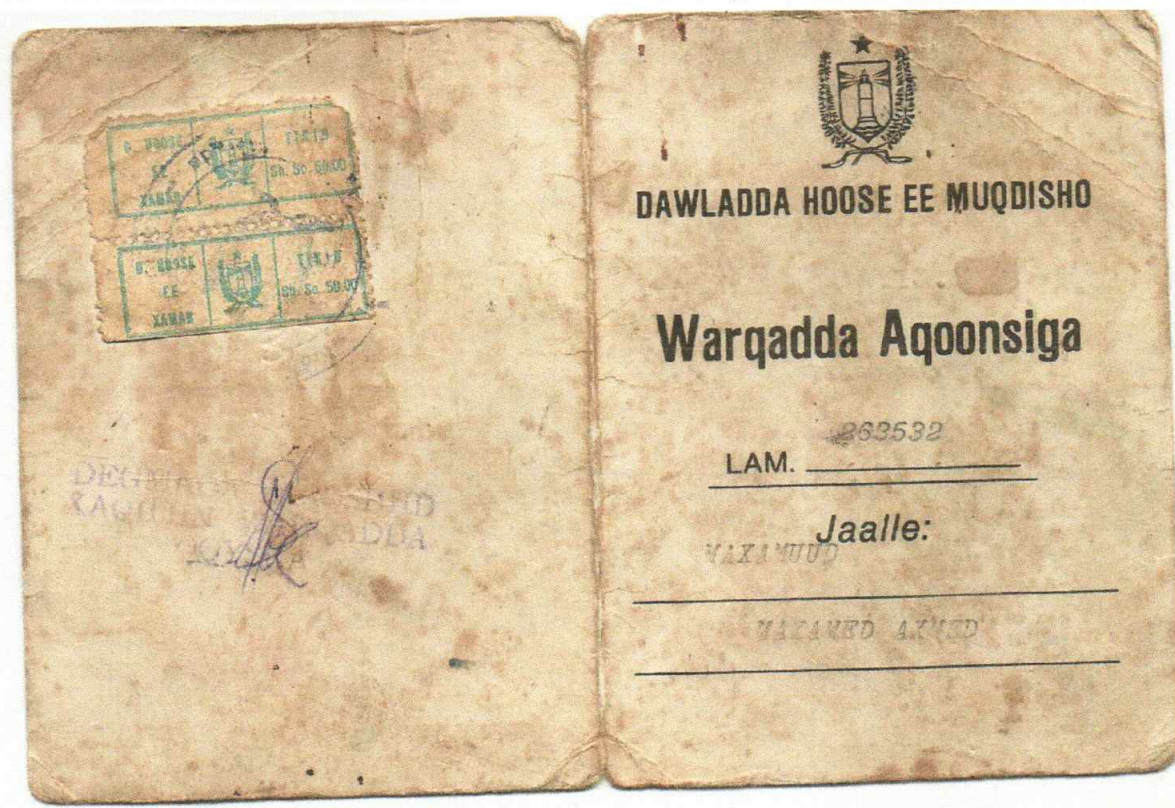 D. HOOSE
EE
XAMAR
Sh. So. 50.00
D. HOOSE
EE
XAMAR
Sh. So. 50.00
DAWLADDA HOOSE EE MUQDISHO
Warqadda Aqoonsiga
263532
LAM.
Jaalle:
MAXAMUUD
MAXAMED AXMED